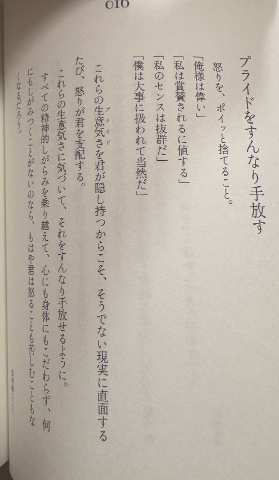 010
プライドをすんなり手放す
怒りを、ポイッと捨てること。
「俺様は偉い」
「私は賞賛されるに値する」
「私のセンスは抜群だ」
「僕は大事に扱われて当然だ」
これらの生意気さを君が隠し持つからこそ、そうでない現実に直面する
たび、怒りが君を支配する。
これらの生意気さに気づいて、それをすんなり手放せるように。
すべての精神的しがらみを乗り越えて、心にも身体にもこだわらず、何
にもしがみつくことがないのなら、もはや君は怒ることも苦しむこともな
くなるだろう。